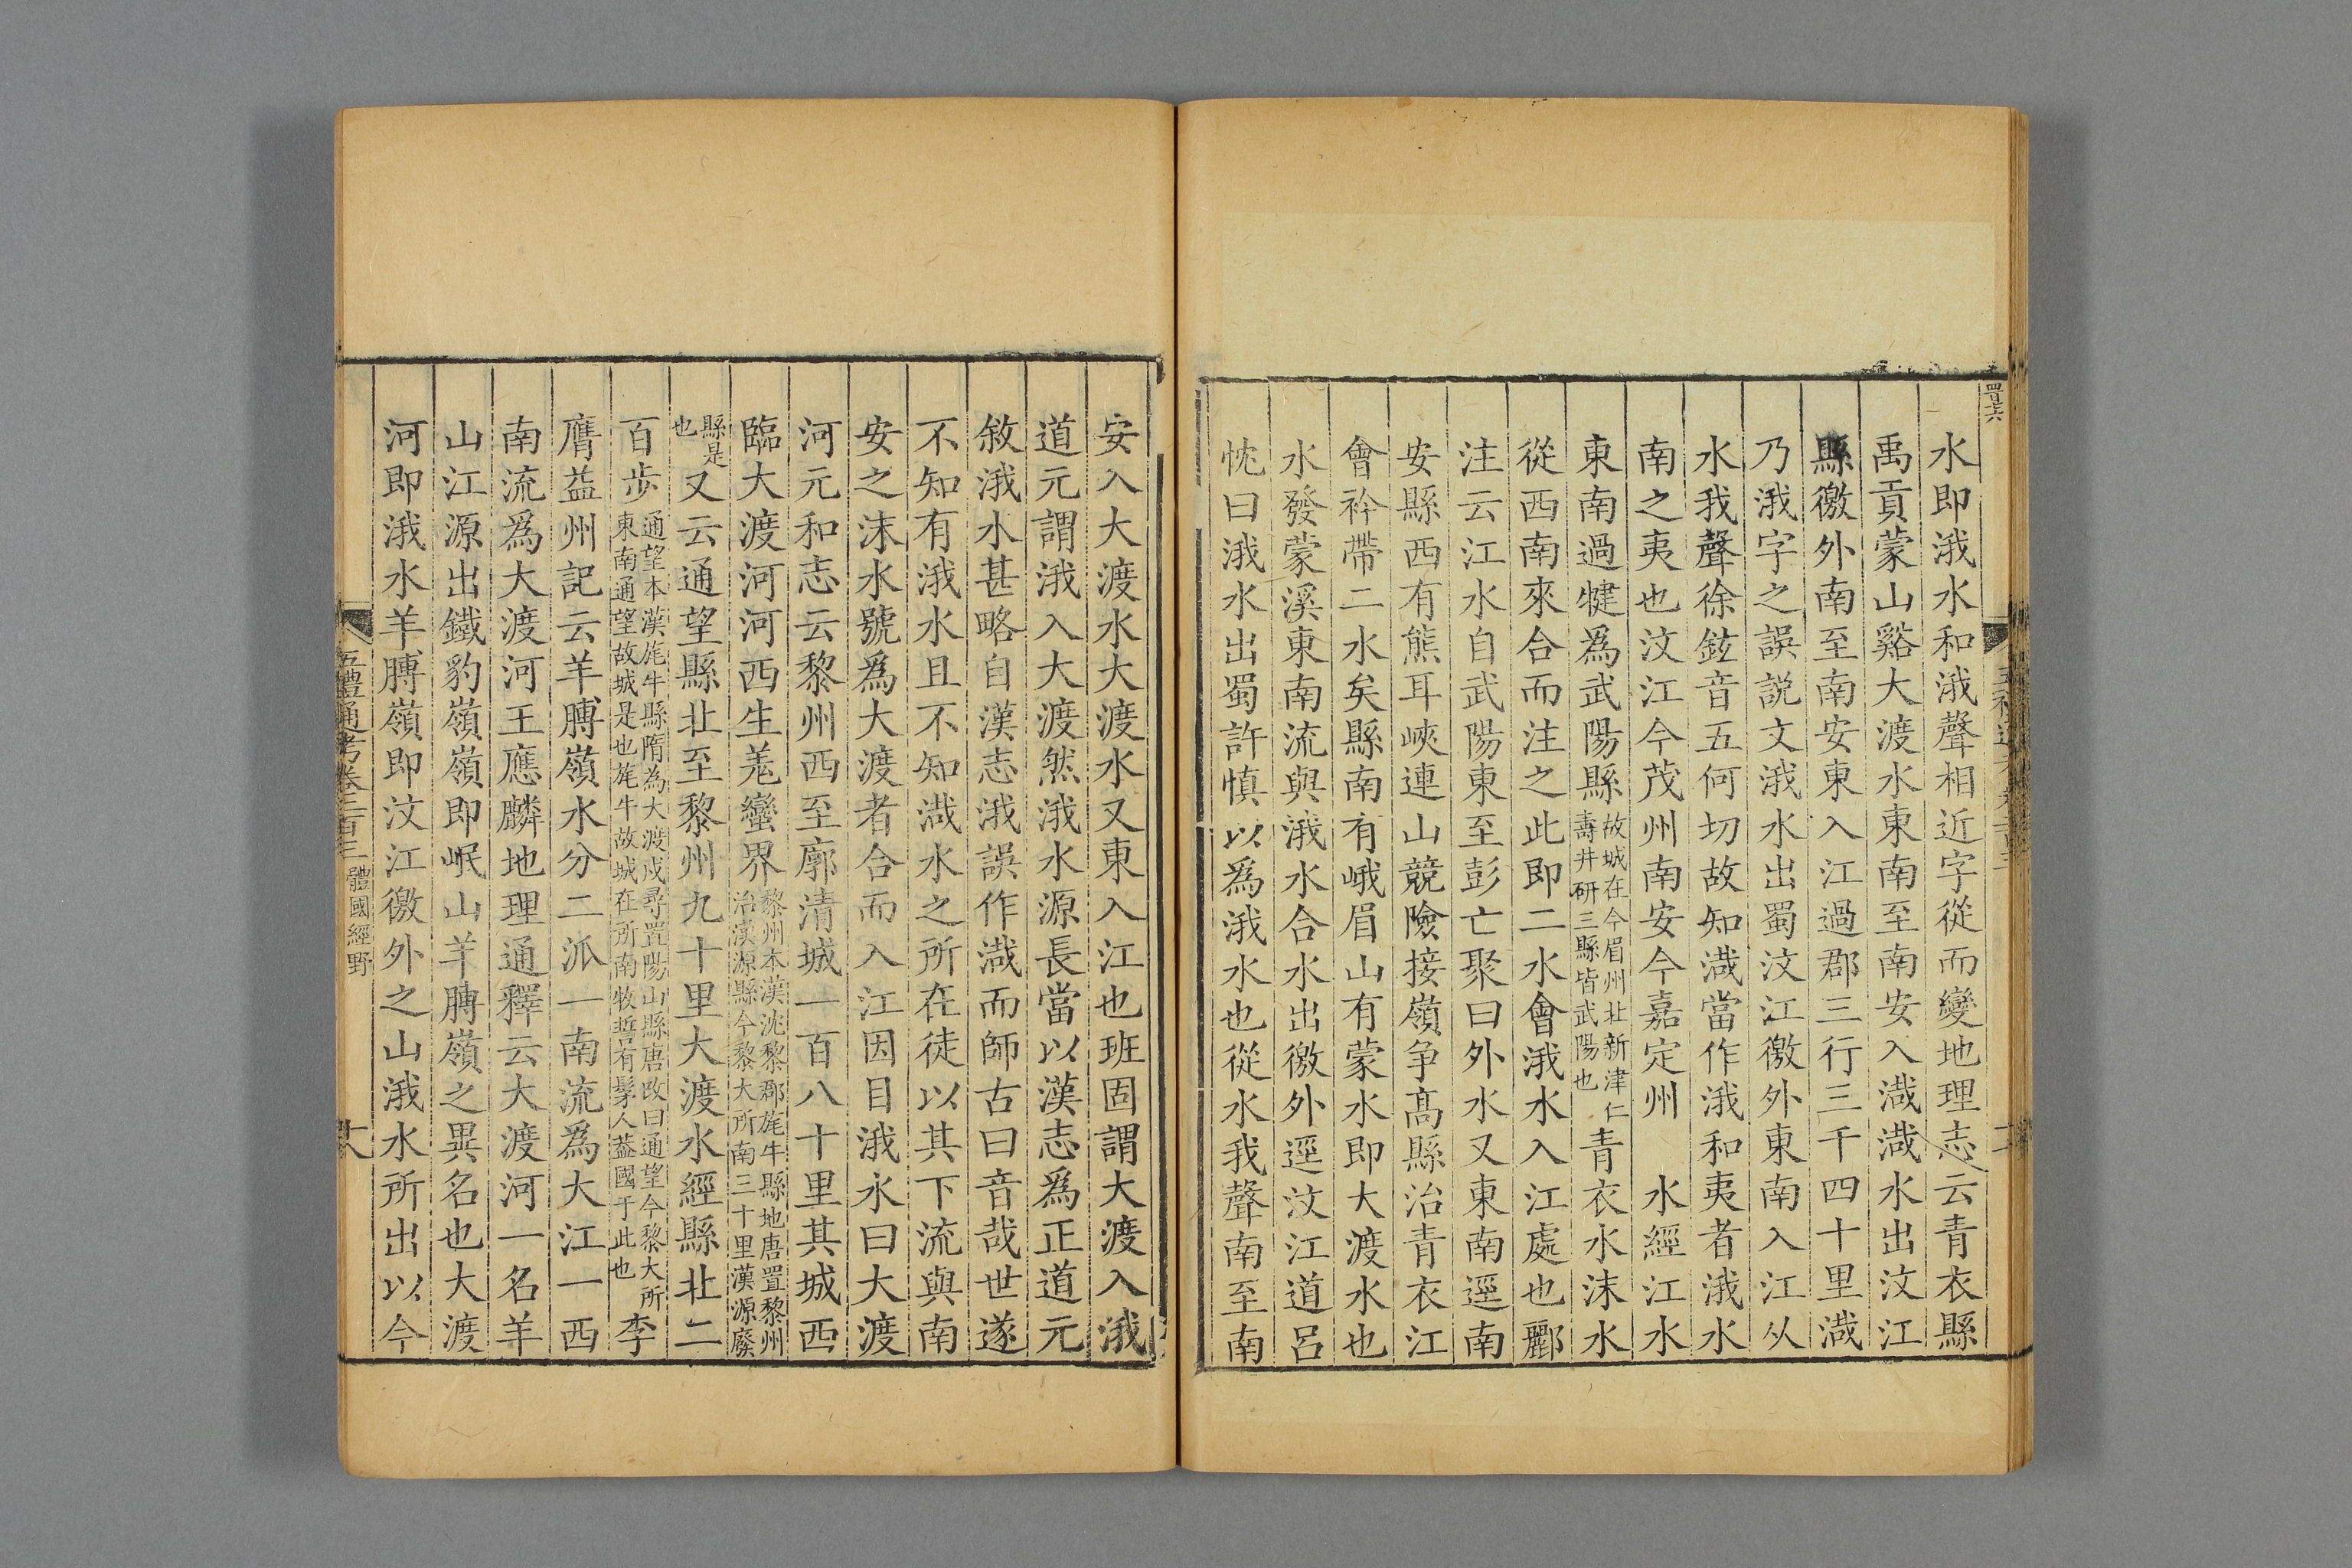 水即涐水和涐聲相近字從而變地理志云青衣縣
禹貢蒙山谿大渡水東南至南安入渽渽水出汶江
縣徼外南至南安東入江過郡三行三千四十里渽
乃涐字之誤説文涐水出蜀汶江徼外東南入江从
水我聲徐鉉音五何切故知渽當作涐和夷者涐水
南之夷也汶江今茂州南安今嘉定州 水經江水
東南過犍爲武陽縣故城在今眉州北新津仁壽井研三縣皆武陽也青衣水沫水
從西南來合而注之此即二水會涐水入江處也酈
注云江水自武陽東至彭亡聚曰外水又東南逕南
安縣西有熊耳峽連山競險接嶺争高縣治青衣江
會衿帶二水矣縣南有峨眉山有蒙水即大渡水也
水發蒙溪東南流與涐水合水出徼外逕汶江道呂
忱曰涐水出蜀許慎以爲涐水也從水我聲南至南
安入大渡水大渡水又東入江也班固謂大渡入涐
道元謂涐入大渡然涐水源長當以漢志爲正道元
敘涐水甚略自漢志涐誤作渽而師古曰音哉世遂
不知有涐水且不知渽水之所在徒以其下流與南
安之沫水號爲大渡者合而入江因目涐水曰大渡
河元和志云黎州西至廓清城一百八十里其城西
臨大渡河河西生羌蠻界黎州本漢沈黎郡旄牛縣地唐置黎州治漢源縣今黎大所南三十里漢源廢
縣是也又云通望縣北至黎州九十里大渡水經縣北二
百步通望本漢旄牛縣隋為大渡戍尋置陽山縣唐改曰通望今黎大所東南通望故城是也旄牛故城在所南牧誓有髳人葢國于此也李
膺益州記云羊膊嶺水分二派一南流爲大江一西
南流爲大渡河王應麟地理通釋云大渡河一名羊
山江源出鐵豹嶺嶺即岷山羊膊嶺之異名也大渡
河即涐水羊膊嶺即汶江徼外之山涐水所出以今
五禮通考卷二百三 體國經野